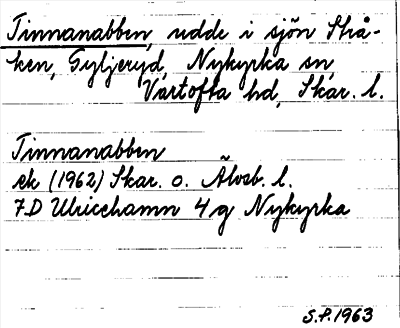 Tinnanabben, udde i sjön Strå-
ken, Gyljeryd, Nykyrka sn,
Vartofta hd, Skar. l.
Tinnanabben
ek (1962) Skar. o. Älvsb. l.
7D Ulricehamn 4g Nykyrka
S.P. 1963